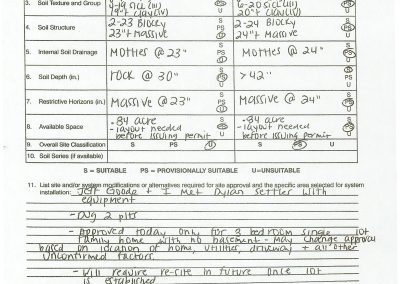 3. Soil Texture and Group
S PS U S PS U
19"+ clay(IV) 20"+ clay(IV)
4. Soil Structure 2-23 Blocky S PS U 2-24 Blocky S PS U
23"+ Massive 24"+ Massive
5. Internal Soil Drainage Mottles @ 23" S PS U Mottles @ 24" S PS U
6. Soil Depth (in.) rock @ 30" S PS U >42" S PS U
7. Restrictive Horizons (in.) Massive @ 23" S PS U Massive @ 24" S PS U
8. Available Space .84 acre S PS U .84 acre S PS U
-layout needed -layout needed
before issuing permit before issuing permit
9. Overall Site Classification S PS U S PS U
10. Soil Series (if available)
S = SUITABLE PS = PROVISIONALLY SUITABLE U=UNSUITABLE
11. List site and/or system modifications or alternatives required for site approval and the specific area selected for system
installation: Jeff Goode + I Met Dylan Settler with
equipment
- Dug 2 pits
- Approved today only for 3 bedroom single lot
family home with no basement - May change approval
based on location of home, utilities, driveway + all other
unconfirmed factors.
- Will require re-site in future once lot
is established